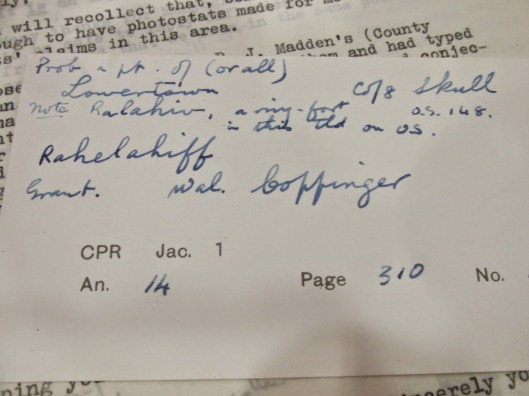 will recollect that,
ough to have photostats made for me
ss' claims in this area.
J. Madden's (County
them and had typed
conjec-
Prob a pt. of (or all)
Lowertown C/of Skull
Note Ralahiv, a ring-fort O.S. 148.
in this tld on OS.
Rahelahiff
Grant. Wal. Coppinger
CPR Jac. 1
An. 14 Page 310 No.
ning you
cerely yo